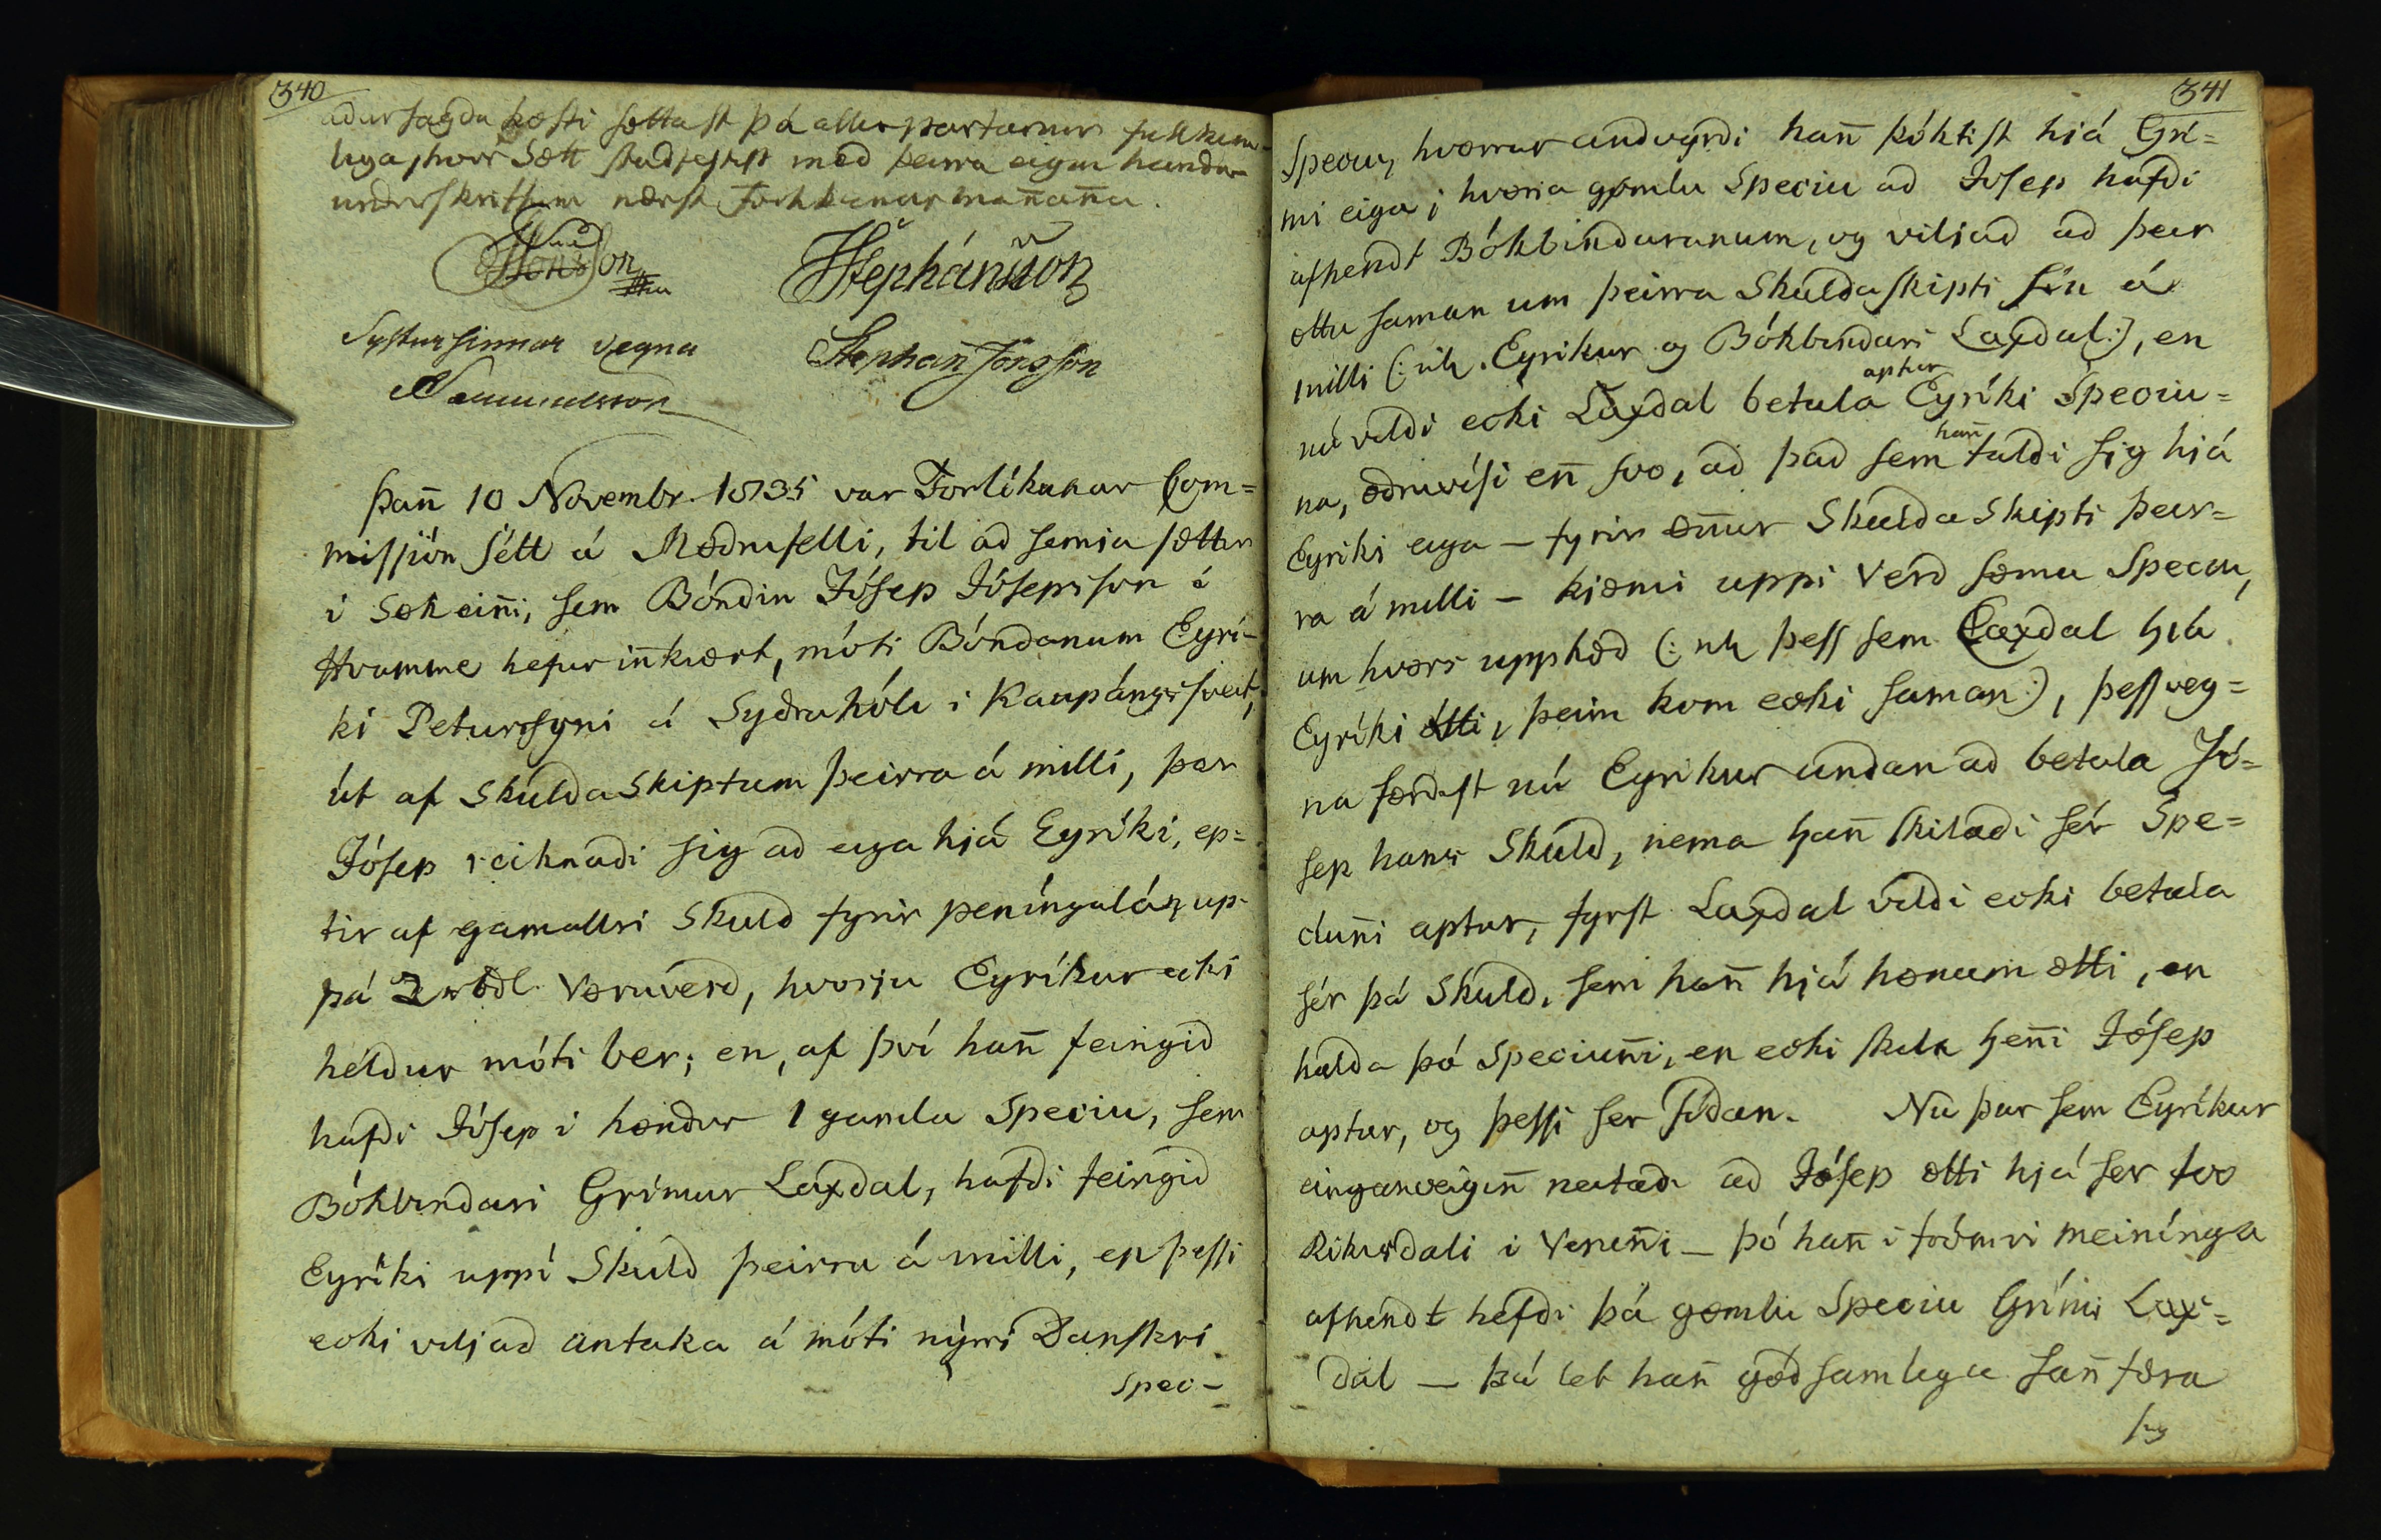 340
aðursagða kosti sættast þá aller partarner fullkom-
lega, hvör Sætt staðfestist með þeirra eigin handar
underskriftum næst Forlikunarmañaña.
Jónsson
HStephánsson
Systur sinnar vegna
Stephan Jónsson
Þañ 10 Novembr. 1835 var Forlíkunar Com=
missjón sétt á Mǫðrufelli, til að semia sættir
i Sǫk eiñi, sem Bóndin Jósep Jósepsson á
Hvamme hefur iñkiært, móti Bóndanum Eyrí-
ki Peturssyni á Syðrahóli i Kaupángssveit,
út af Skulda Skiptum þeirra á milli, þar
Jósep reiknaði sig að eiga hjá Eyríki, ep=
tir af gamallri Skuld fyrir peníngalán, up-
pá 2 rbdl. Vǫruverd, hvorju Eyríkur ecki
heldur móti ber; en, af því hañ feingið
hafði Jósep i hǫndur 1 gamla Speciu, sem
Bókbindari Grímur Laxdal, hafði feingið
Eyríki uppí Skuld þeirra á milli, en þessi
ecki viljað antaka á móti nýrri Danskri
Spec-
341
Speciu, hvorrar andvyrði hañ þóktist hjá Grí=
mi eiga; hvoria gǫmlu Speciu að Jósep hafði
afhendt Bókbindaranum, og viljað að þeir
ættu saman um þeirra Skuldaskipti sín á
milli (: nl. Eyríkur og Bókbindari Laxdal:), en
nú vildi ecki Laxdal betala aptur Eyríki Speciu=
na, ǫðruvísi eñ svo, að það sem hañ taldi sig hjá
Eyríki eiga — fyrir ǫñur Skulda Skipti þeir=
ra á milli — kiæmi uppi Verd sǫmu Speciu,
um hvors upphæð (: nl. þess sem Laxdal hjá
Eyríki átti, þeim kom ecki saman:), þess veg=
na færðist nú Eyríkur undan að betala Jó=
sep hans Skuld, nema hañ skilaði sér Spe=
ciuñi aptur, fyrst Laxdal vildi ecki betala
sér þá Skuld, sem hañ hjá hǫnum átti, en
halda þó Speciuñi, en ecki skila heñi Jósep
aptur, og þessi ser síðan. Nú þar sem Eyríkur
einganveigiñ neitaði að Jósep ætti hjá ser tvo
Rikisdali i Veruñi — þó hañ i meinínga
afhendt hefði þá gǫmlu Speciu Grími Lax=
dal — þá let hañ goðsamlega sañfæra
sig